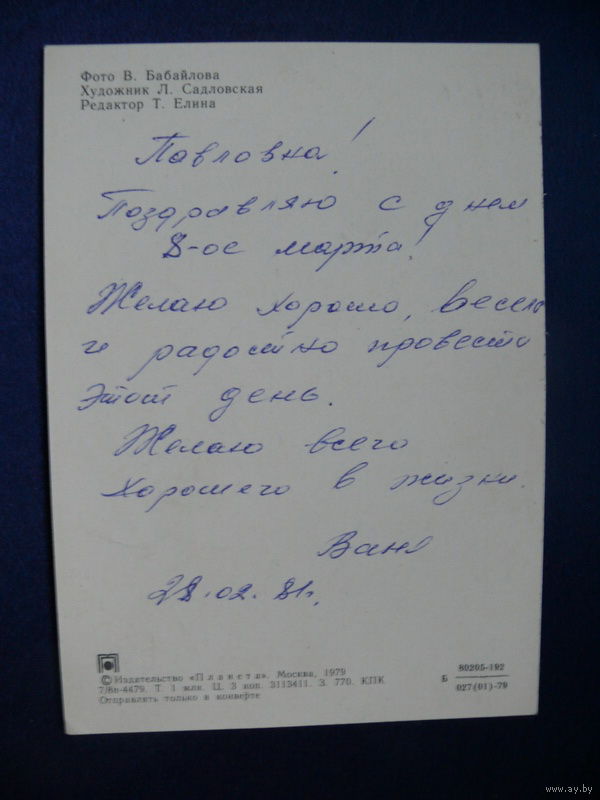 Фото В. Бабайлова
Художник Л. Садловская
Редактор Т. Елина
Павловна!
Поздравляю с днем
8-ое марта!
Желаю хорошо, весело
и радостно провести
этот день.
Желаю всего
хорошего в жизни.
Ваня
28.02.81г.
© Издательство «Планета». Москва, 1979
7/8в-4479. Т. 1 млн. Ц. 3 коп. 3113411. З. 770. КПК
Отправлять только в конверте
Б 80205-192
027(01)-79
www.ay.by